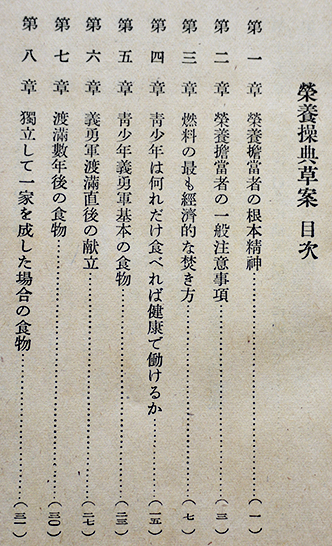 榮養操典草案 目次
第一章 榮養擔當者の根本精神…………(一)
第二章 榮養擔當者の一般注意事項…………(三)
第三章 燃料の最も經濟的な焚き方…………(七)
第四章 靑少年は何れだけ食べれば健康で働けるか…………(一五)
第五章 靑少年義勇軍基本の食物…………(二三)
第六章 義勇軍渡滿直後の献立…………(二七)
第七章 渡滿數年後の食物…………(三〇)
第八章 獨立して一家を成した場合の食物…………(三一)